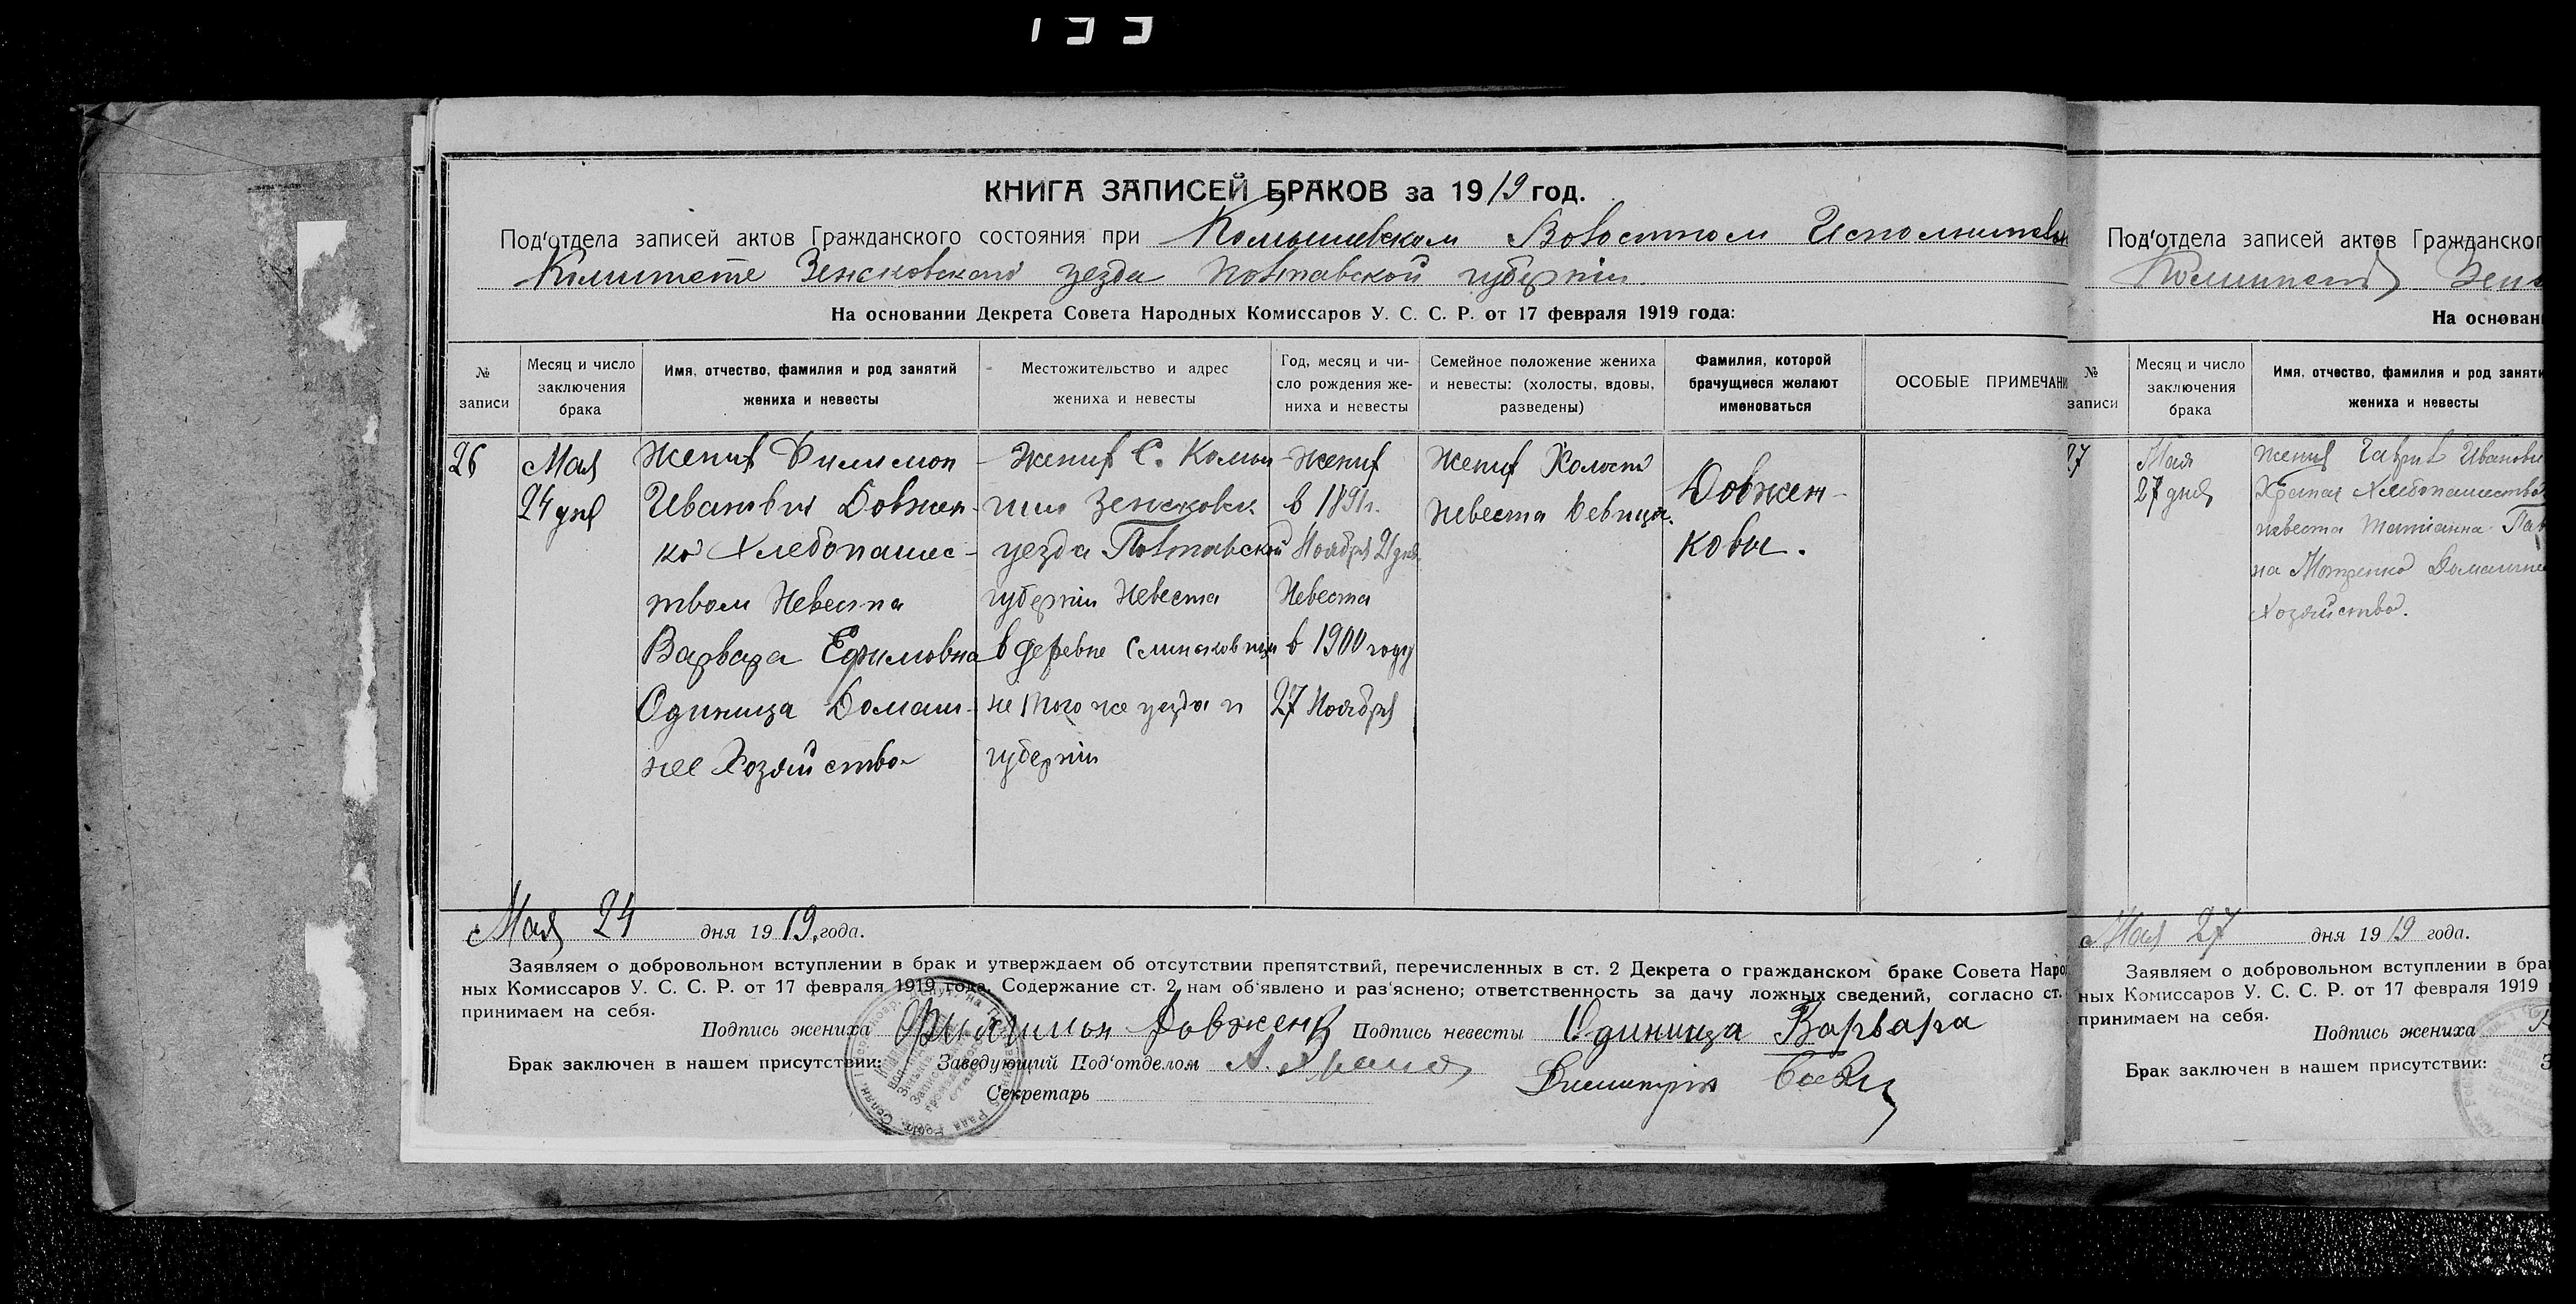 КНИГА ЗАПИСЕЙ БРАКОВ за 1919 год.
Под'отдела записей актов Гражданского состояния при Комышевском Волостном Исполнительн
Комитете Зеньковского уезда Полтавской губернии.
На основании Декрета Совета Народных Комиссаров У. С. С. Р. от 17 февраля 1919 года:
№ записи
Месяц и число заключения брака
Имя, отчество, фамилия и род занятий жениха и невесты
Местожительство и адрес жениха и невесты
Год, месяц и число рождения жениха и невесты
Семейное положение жениха и невесты: (холосты, вдовы, разведены)
Фамилия, которой брачущиеся желают именоваться
ОСОБЫЕ ПРИМЕЧАНИ
26
Мая
24 дня
Жених Филимон
Иванович Довжен-
ко Хлебопашес-
твом Невеста
Варвара Ефимовна
Одиница Домаш-
нее Хозяйство
Жених С. Комы-
ши Зеньковск
уезда Полтавской
губернии Невеста
в деревне
не того же уезда и
губернии
Жених
в 1891 г.
Ноября 21 дня
Невеста
в 1900 году
27 Ноября
Жених Холост
Невеста Девица.
Довжен-
ковы.
Мая 24 дня 1919 года.
Заявляем о добровольном вступлении в брак и утверждаем об отсутствии препятствий, перечисленных в ст. 2 Декрета о гражданском браке Совета Народ
ных Комиссаров У. С. С. Р. от 17 февраля 1919 года. Содержание ст. 2 нам об'явлено и раз'яснено; ответственность за дачу ложных сведений, согласно ст.
принимаем на себя.
Подпись жениха Филимон Довженко Подпись невесты Одиница Варвара
Брак заключен в нашем присутствии: Заведующий Под'отделом
Секретарь
Под'отдела записей актов Гражданског
Комитете Зень
На основани
№ записи
Месяц и число заключения брака
Имя, отчество, фамилия и род заняти
жениха и невесты
27
Мая
27 дня
Жених Гавриил Иванович
Хлебопашество
Невеста Татианна Пав
на Домашнее
Хозяйство.
Мая 27 дня 1919 года.
Заявляем о добровольном вступлении в брак
ных Комиссаров У. С. С. Р. от 17 февраля 1919
принимаем на себя.
Подпись жениха
Брак заключен в нашем присутствии: З